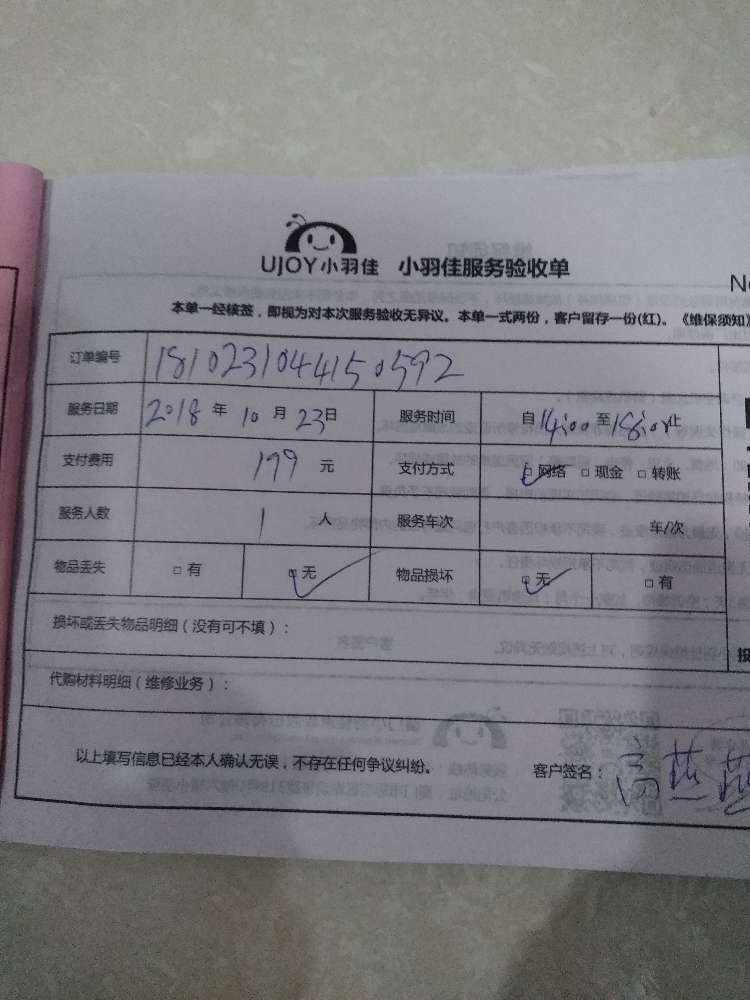 UJOY小羽佳 小羽佳服务验收单
No
本单一经核签，即视为对本次服务验收无异议。本单一式两份，客户留存一份(红)。《维保须知》
订单编号 1810231044150592
服务日期 2018 年 10 月 23 日 服务时间 自 14:00 至 18:00 止
支付费用 199 元 支付方式 □ 网络 □ 现金 □ 转账
服务人数 1 人 服务车次 车/次
物品丢失 □ 有 □ 无 物品损坏 □ 无 □ 有
损坏或丢失物品明细（没有可不填）：
代购材料明细（维修业务）：
以上填写信息已经本人确认无误，不存在任何争议纠纷。 客户签名：